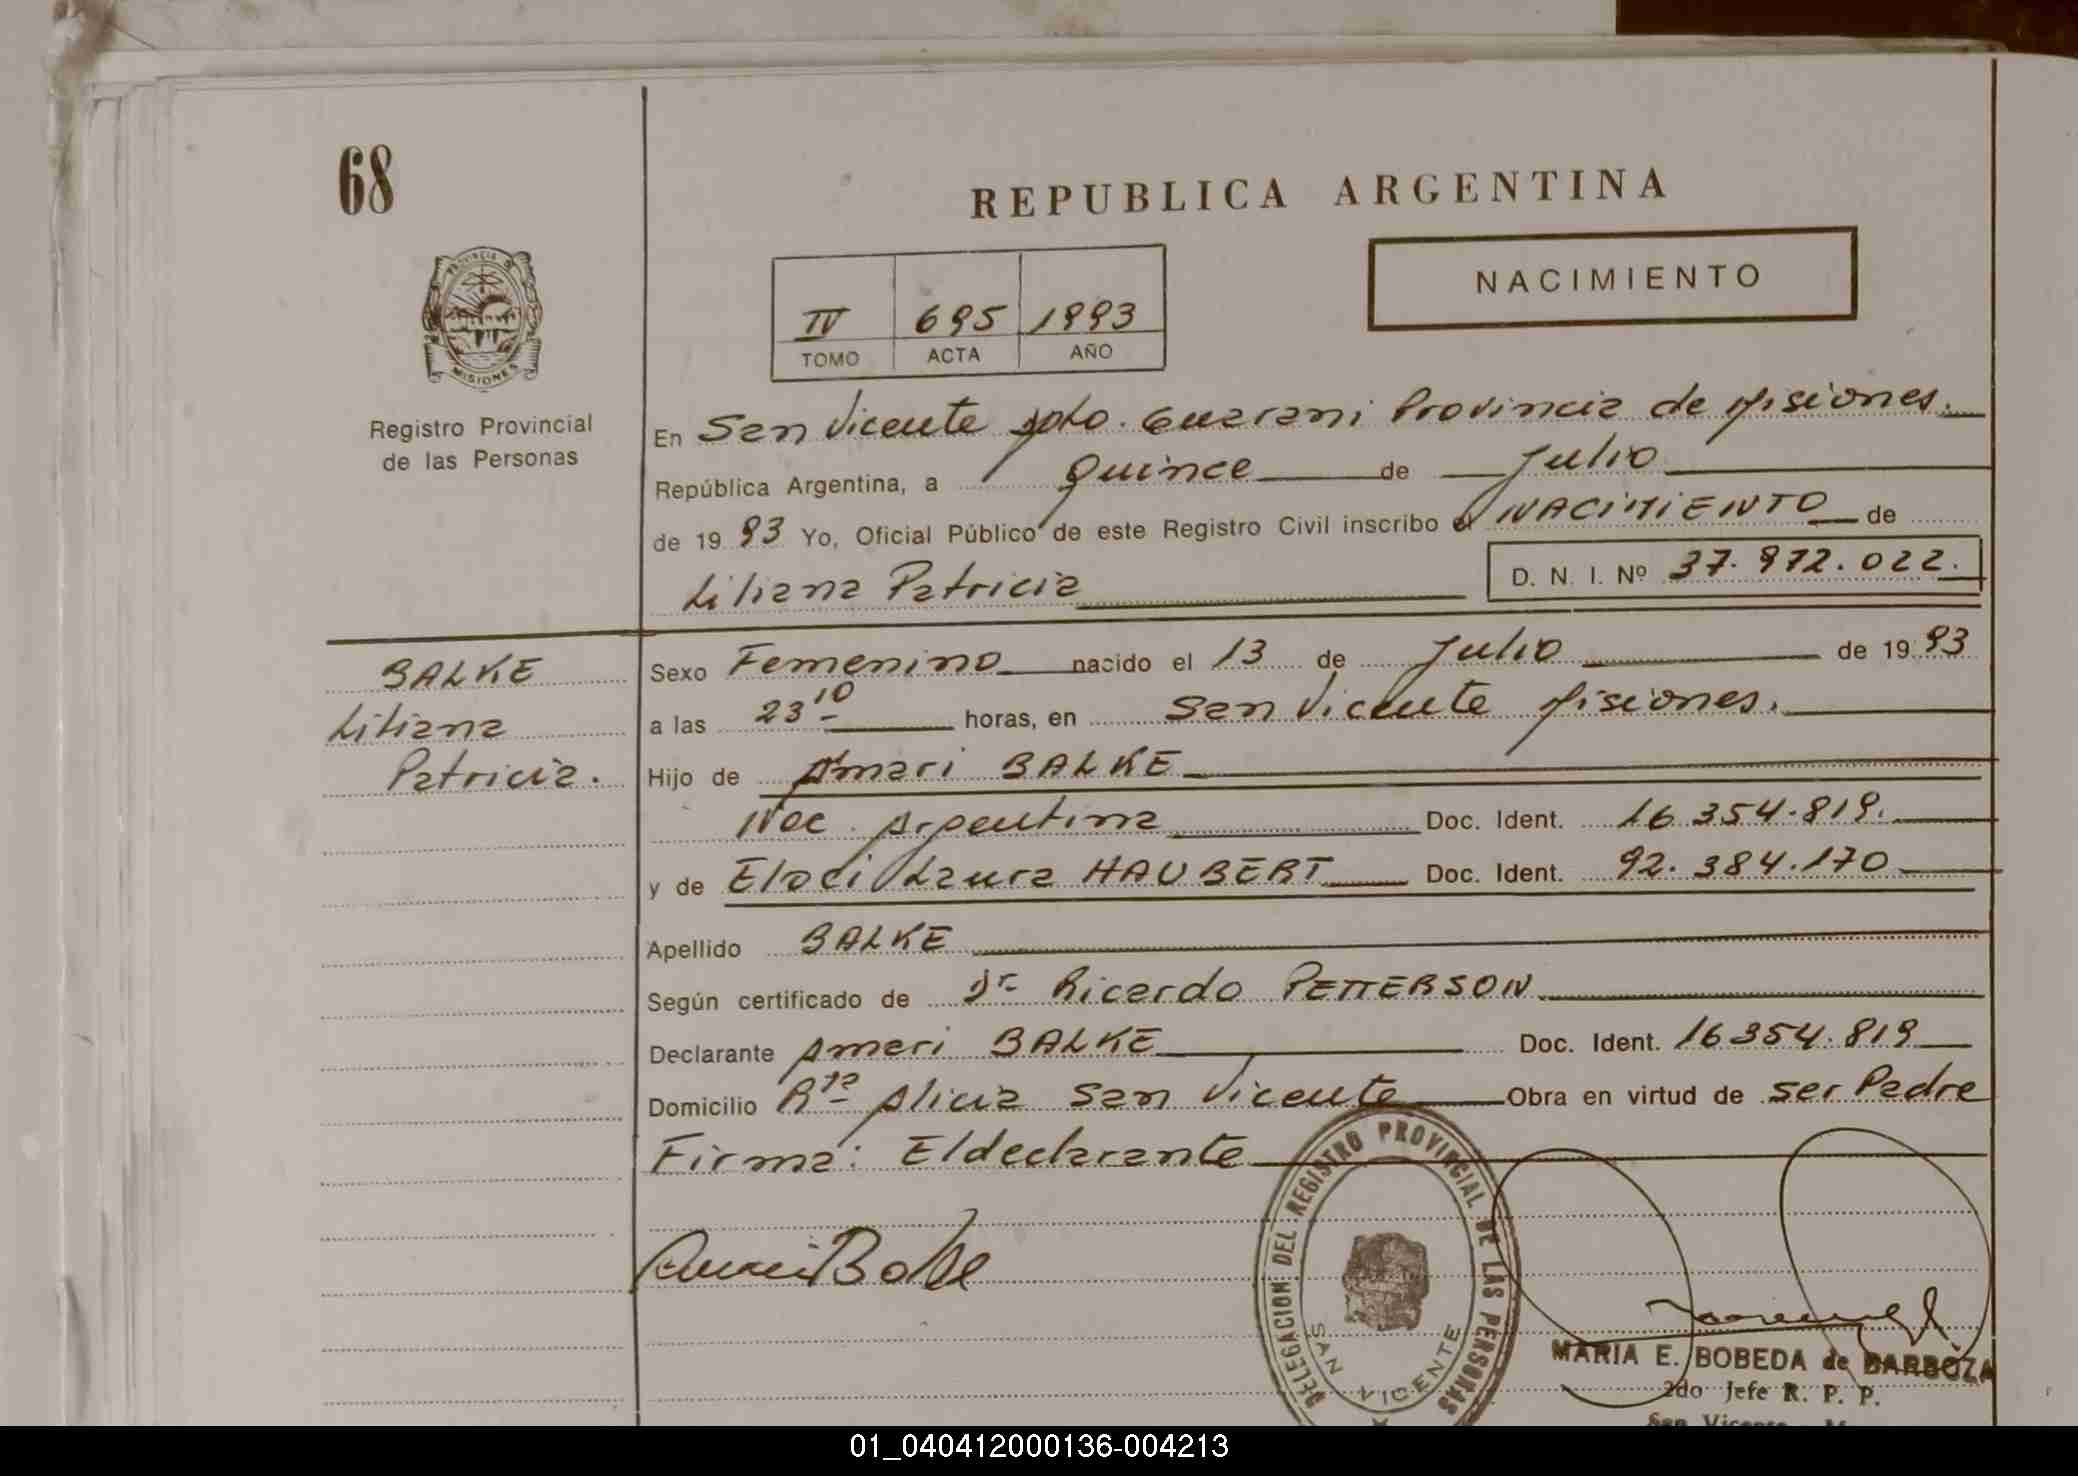 68
REPUBLICA ARGENTINA
PROVINCIA DE
MISIONES
Registro Provincial
de las Personas
NACIMIENTO
IV 695 1993
TOMO ACTA AÑO
En San Vicente Dpto. Guarani Provincia de Misiones.
República Argentina, a Quince de Julio
de 1993 Yo, Oficial Público de este Registro Civil inscribo el NACIMIENTO de
Liliana Patricia D. N. I. Nº 37.972.022.
BALKE
Liliana
Patricia.
Sexo Femenino nacido el 13 de Julio de 1993
a las 23 10 horas, en San Vicente Misiones.
Hijo de Amari BALKE
Nac. Argentina Doc. Ident. 16.354.819.
y de Eloci Laura HAUBERT Doc. Ident. 92.384.170
Apellido BALKE
Según certificado de Dr Ricardo PETTERSON
Declarante Amari BALKE Doc. Ident. 16354.819
Domicilio Rta Alicia San Vicente Obra en virtud de ser Padre
Firma: El declarante
DELEGACION DEL REGISTRO PROVINCIAL DE LAS PERSONAS
SAN VICENTE
MARIA E. BOBEDA de BARBOZA
2do Jefe R. P. P.
San Vicente
01_040412000136-004213